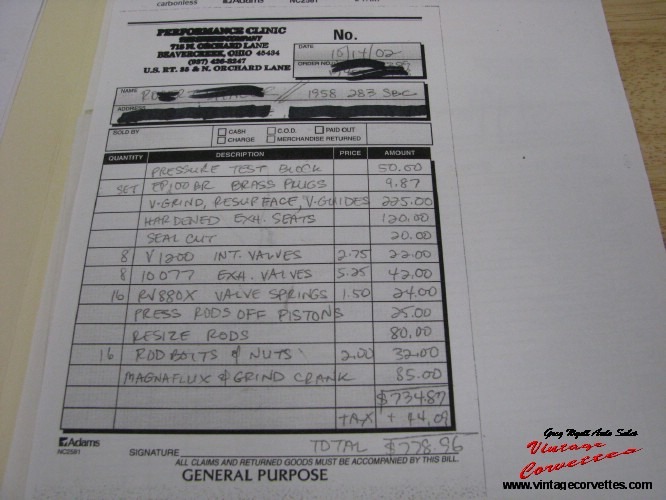 carbonless Adams NC2581
PERFORMANCE CLINIC
715 N. ORCHARD LANE
BEAVERCREEK, OHIO 45434
(937) 426-8247
U.S. RT. 35 & N. ORCHARD LANE
No.
DATE
10/14/02
ORDER NO.
NAME 1958 283 SBC
ADDRESS
SOLD BY CASH C.O.D. PAID OUT
CHARGE MERCHANDISE RETURNED
QUANTITY DESCRIPTION PRICE AMOUNT
PRESSURE TEST BLOCK 50.00
SET BRASS PLUGS 9.87
V-GRIND, RESURFACE, V-GUIDES 225.00
HARDENED EXH. SEATS 120.00
SEAL CUT 20.00
8 V1200 INT. VALVES 2.75 22.00
8 10077 EXH. VALVES 5.25 42.00
16 RV880X VALVE SPRINGS 1.50 24.00
PRESS RODS OFF PISTONS 25.00
RESIZE RODS 80.00
16 ROD BOLTS & NUTS 2.00 32.00
MAGNAFLUX & GRIND CRANK 85.00
$734.87
TAX + 44.09
TOTAL $778.96
Adams
NC2581
SIGNATURE
ALL CLAIMS AND RETURNED GOODS MUST BE ACCOMPANIED BY THIS BILL.
GENERAL PURPOSE
Greg Wyatt Auto Sales
Vintage
Corvettes
www.vintagecorvettes.com